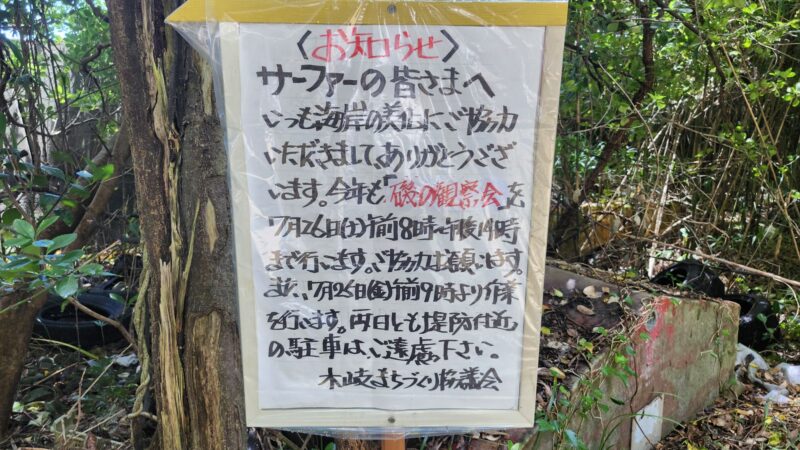 〈お知らせ〉
サーファーの皆さまへ
いつも海岸の美化にご協力
いただきましてありがとうござ
います。今年も「磯の観察会」を
7月26日(土)午前8時~午後14時
まで行います。ご協力お願います。
また、7月25日(金)午前9時より作業
を行います。両日とも堤防付近
の駐車は、ご遠慮下さい。
木崎まちづくり協議会